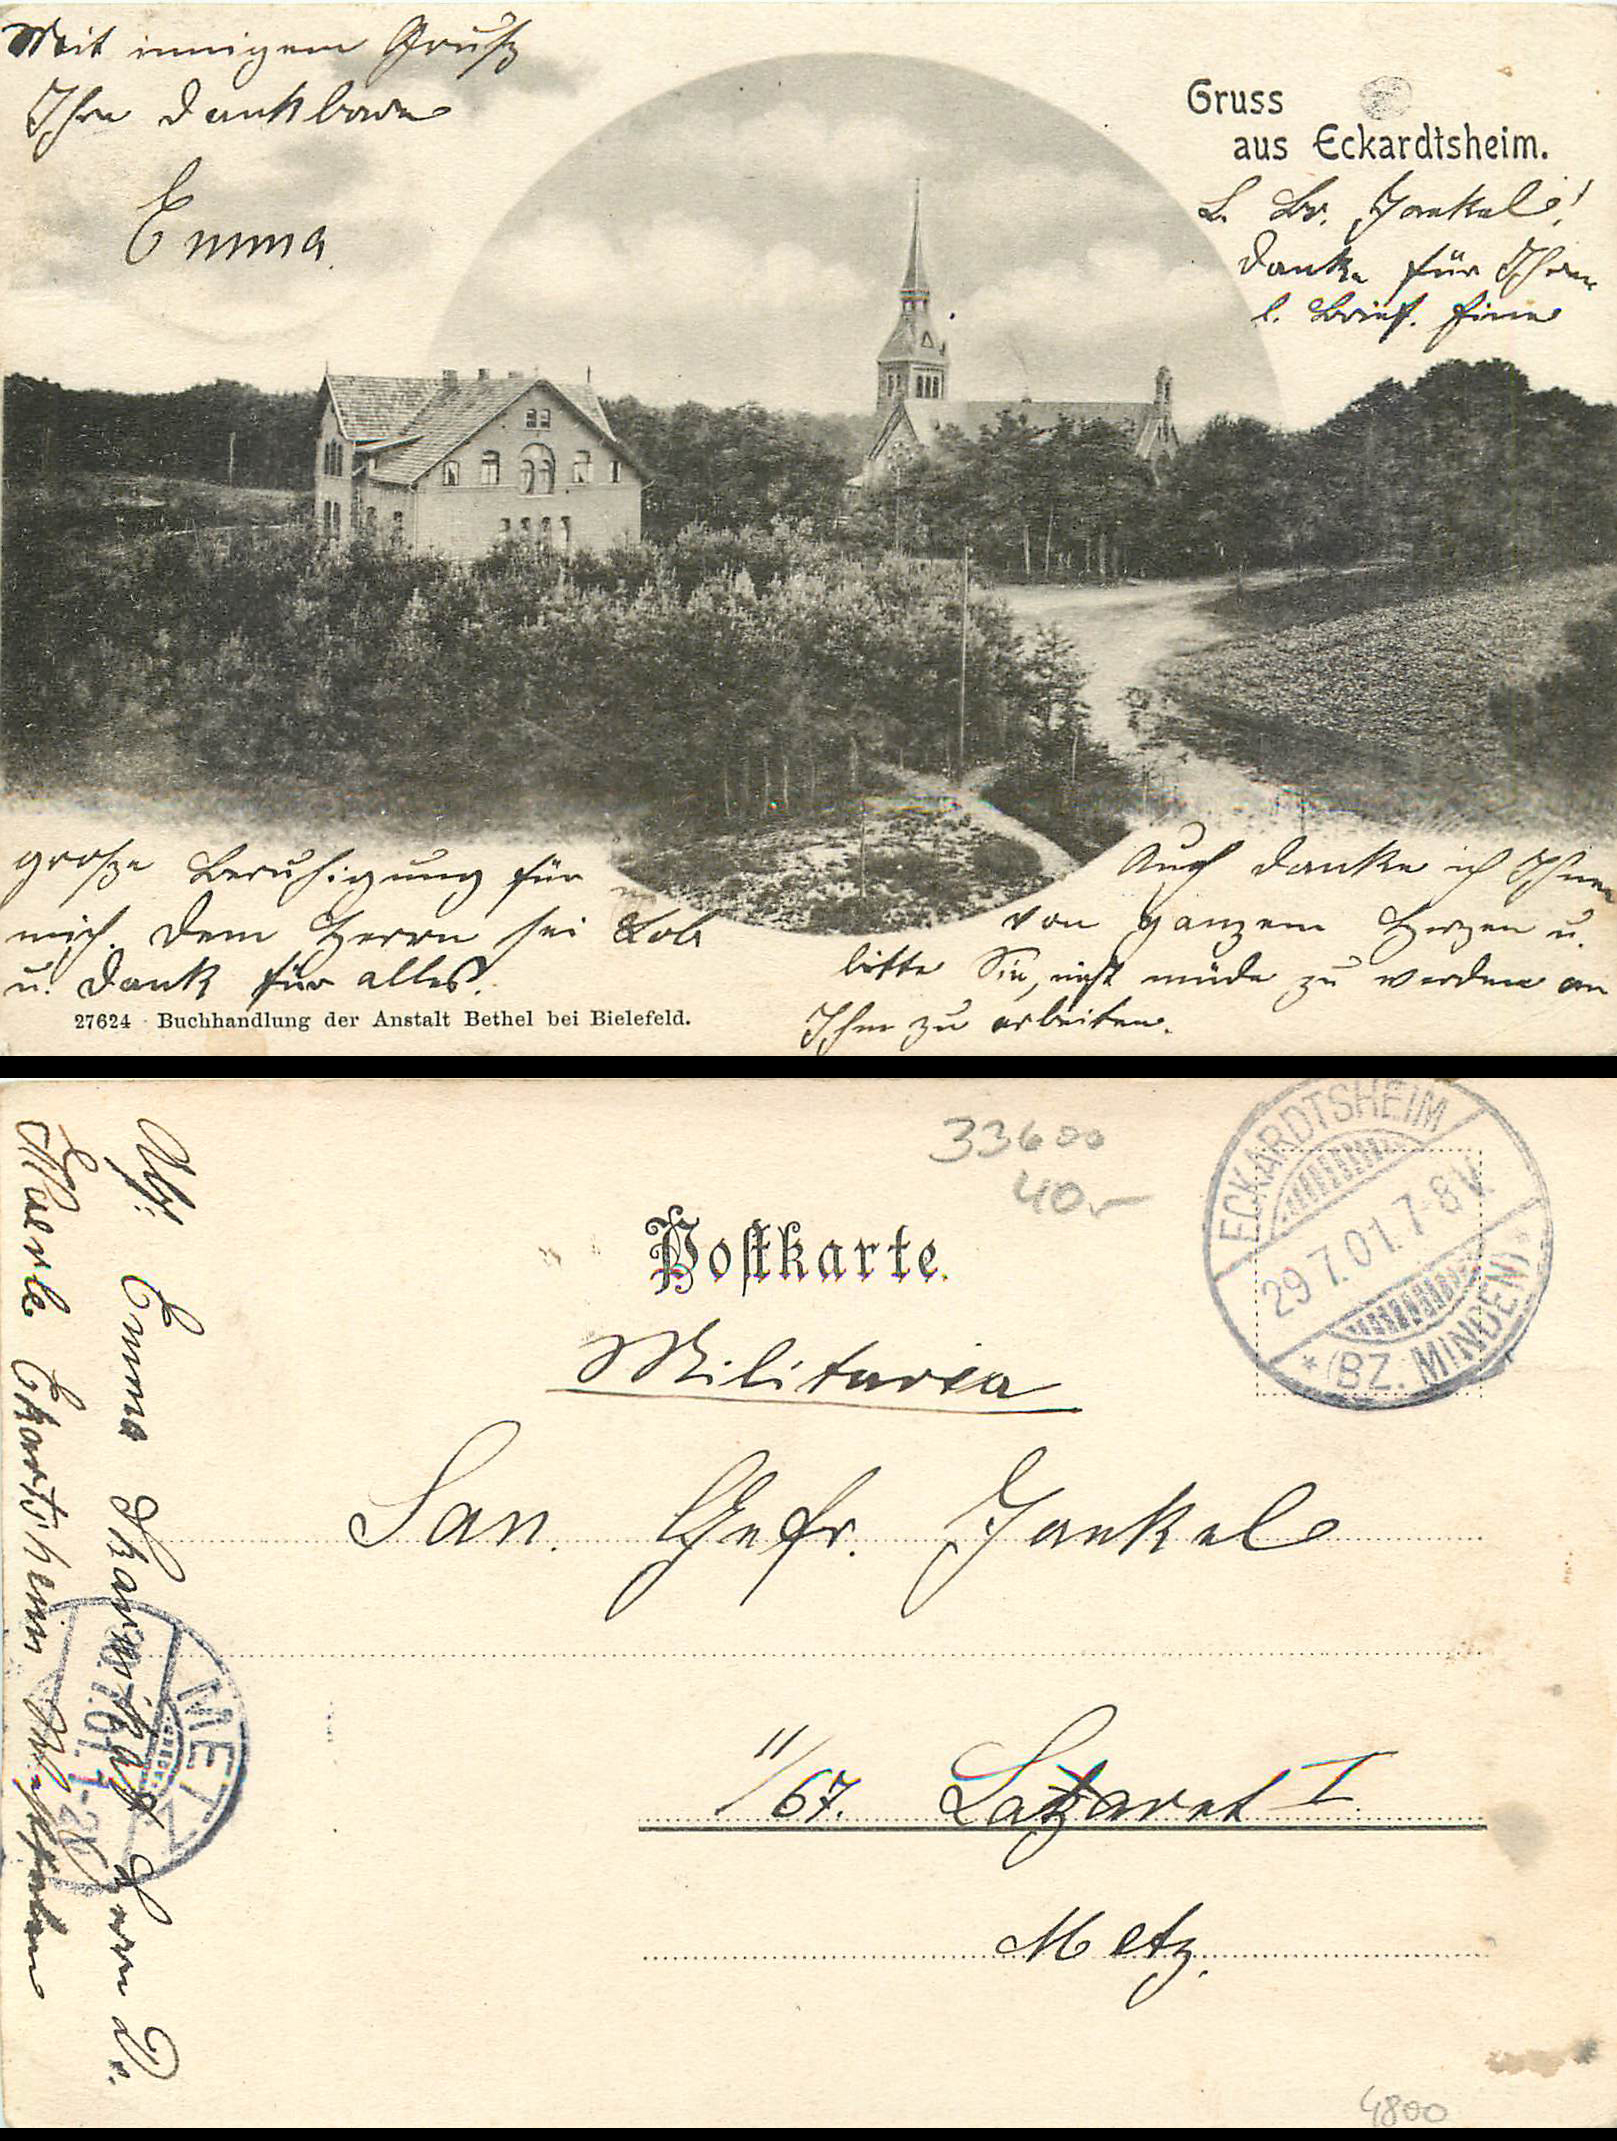 Gruss
aus Eckardtsheim.
L. Br. Jaekel!
Danke für Ihren
l. Brief. Eine
große Beruhigung für
mich. Dem Herrn sei Lob
u. Dank für alles.
Auch danke ich Ihnen
von ganzem Herzen u.
bitte Sie, nicht müde zu werden an
Ihm zu arbeiten.
Mit innigem Gruß
Ihre dankbare
Emma.
27624 Buchhandlung der Anstalt Bethel bei Bielefeld.
33600
40,-
ECKARDTSHEIM
29.7.01.7-8V.
* (BZ. MINDEN) *
Postkarte.
Militaria
San. Gefr. Jaekel
11/67. Lazaret I.
Metz.
Abs: Emma
METZ
4800